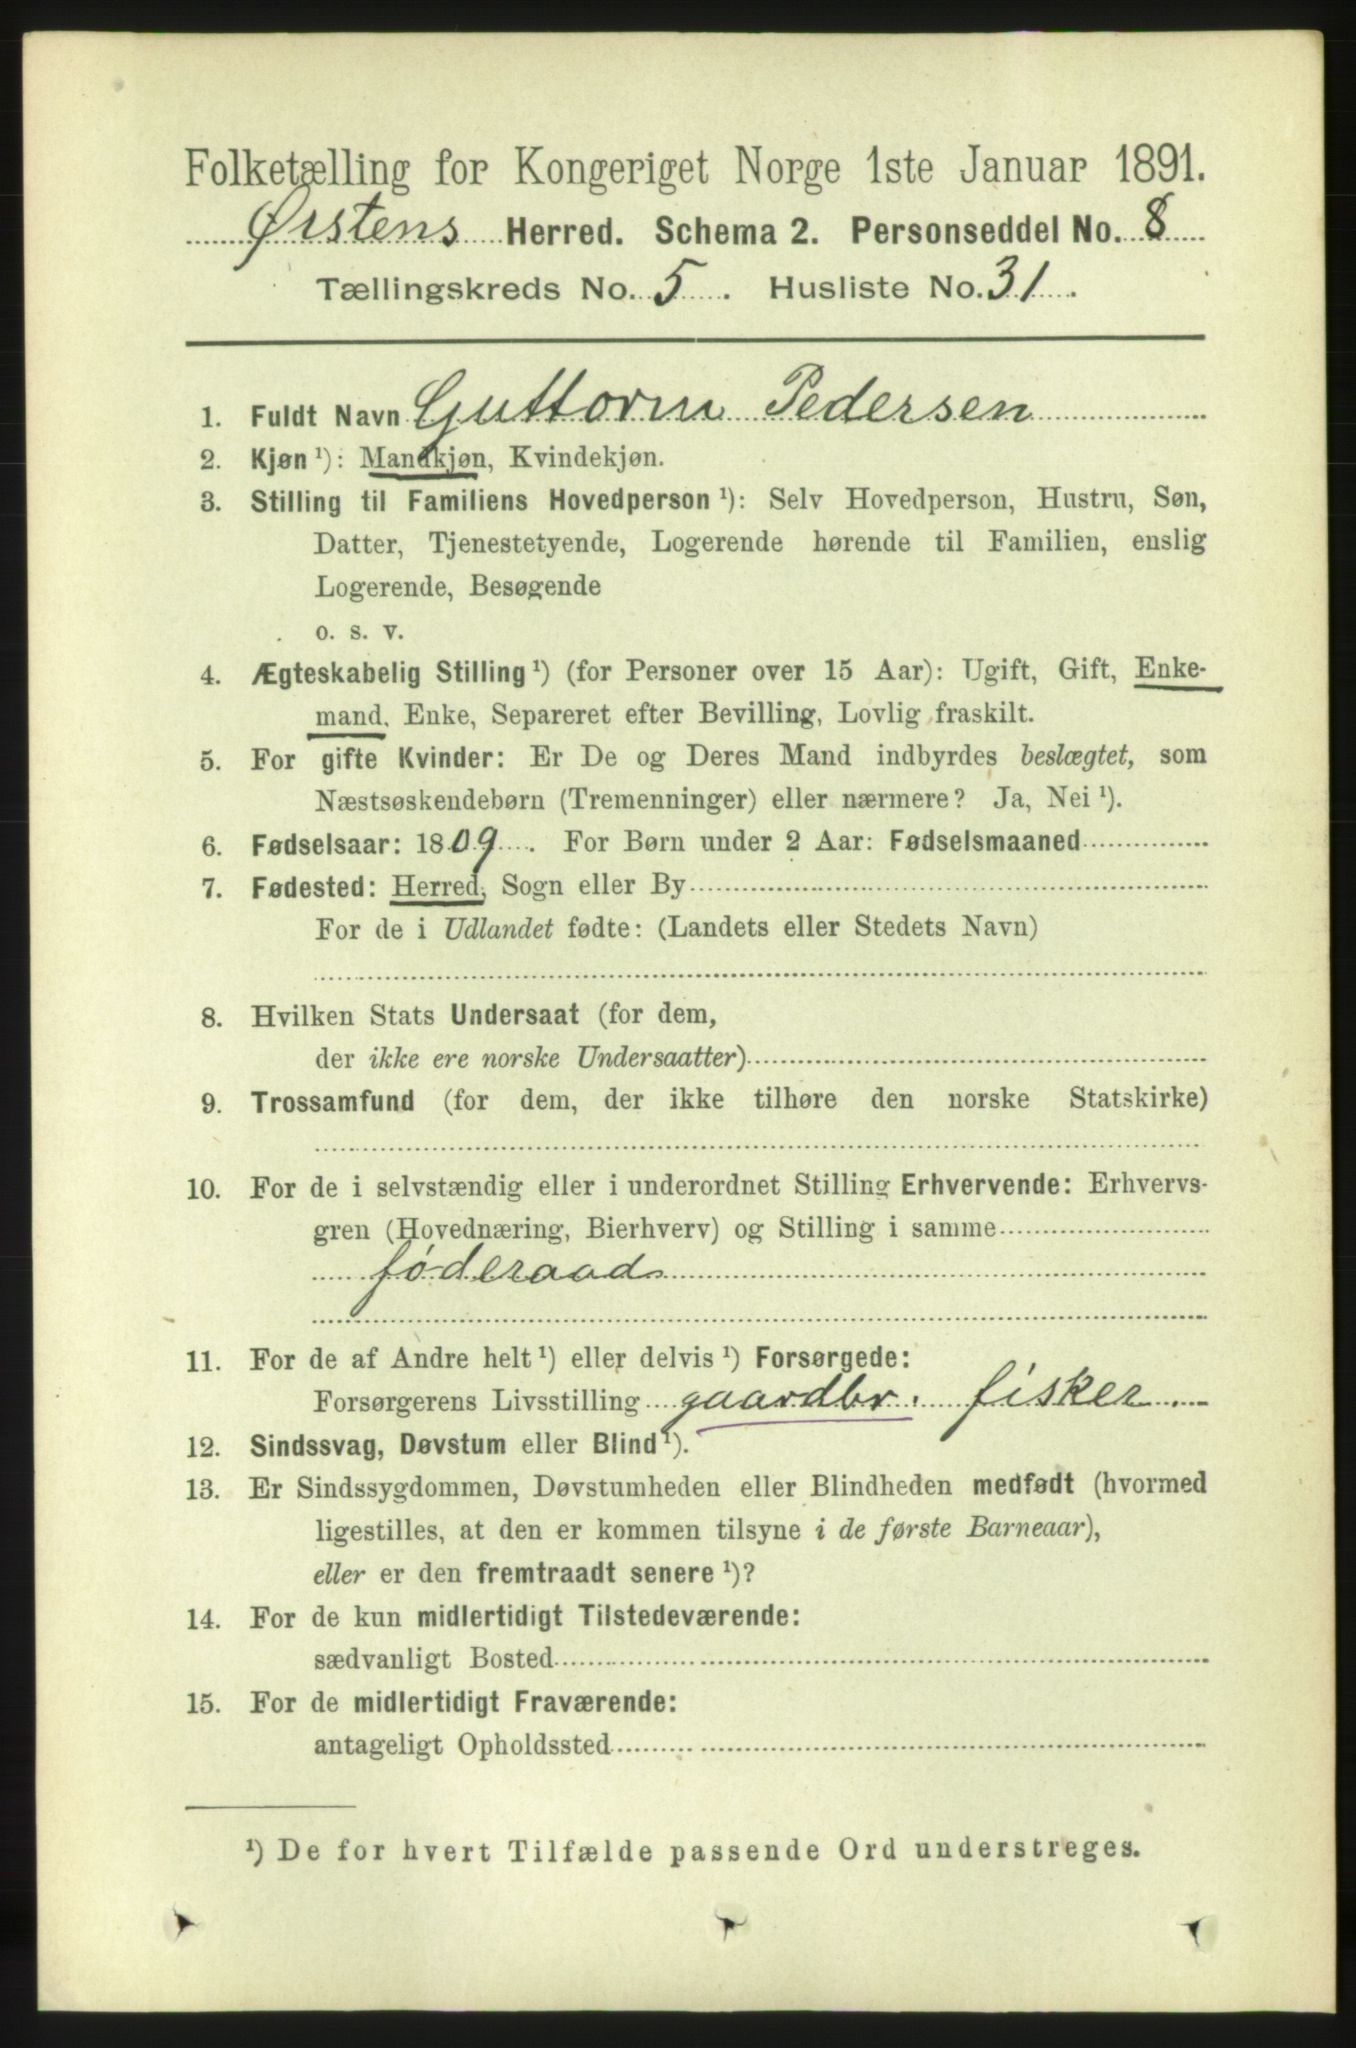 Folketælling for Kongeriget Norge 1ste Januar 1891.
Ørstens Herred. Schema 2. Personseddel No. 8
Tællingskreds No. 5. Husliste No. 31.
1. Fuldt Navn Guttorm Pedersen
2. Kjøn ¹): Mandkjøn, Kvindekjøn.
3. Stilling til Familiens Hovedperson ¹): Selv Hovedperson, Hustru, Søn,
Datter, Tjenestetyende, Logerende hørende til Familien, enslig
Logerende, Besøgende
o. s. v.
4. Ægteskabelig Stilling ¹) (for Personer over 15 Aar): Ugift, Gift, Enke-
mand, Enke, Separeret efter Bevilling, Lovlig fraskilt.
5. For gifte Kvinder: Er De og Deres Mand indbyrdes beslægtet, som
Næstsøskendebørn (Tremenninger) eller nærmere? Ja, Nei ¹).
6. Fødselsaar: 1809. For Børn under 2 Aar: Fødselsmaaned
7. Fødested: Herred, Sogn eller By
For de i Udlandet fødte: (Landets eller Stedets Navn)
8. Hvilken Stats Undersaat (for dem,
der ikke ere norske Undersaatter)
9. Trossamfund (for dem, der ikke tilhøre den norske Statskirke)
10. For de i selvstændig eller i underordnet Stilling Erhvervende: Erhvervs-
gren (Hovednæring, Bierhverv) og Stilling i samme
føderaad
11. For de af Andre helt ¹) eller delvis ¹) Forsørgede:
Forsørgerens Livsstilling gaardbr. fisker.
12. Sindssvag, Døvstum eller Blind ¹).
13. Er Sindssygdommen, Døvstumheden eller Blindheden medfødt (hvormed
ligestilles, at den er kommen tilsyne i de første Barneaar),
eller er den fremtraadt senere ¹)?
14. For de kun midlertidigt Tilstedeværende:
sædvanligt Bosted
15. For de midlertidigt Fraværende:
antageligt Opholdssted
¹) De for hvert Tilfælde passende Ord understreges.